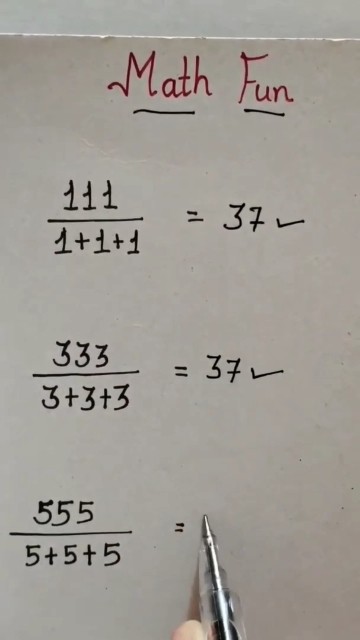 Math Fun
111
1+1+1
= 37 ✓
333
3+3+3
= 37 ✓
555
5+5+5
=